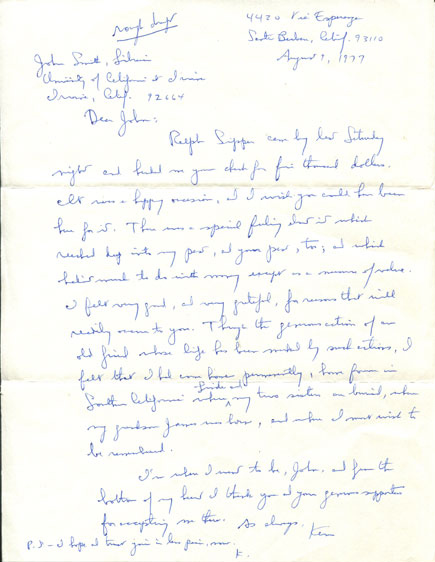 rough draft
4420 Via Esperanza
Santa Barbara, Calif. 93110
August 9, 1977
John Smith, Librarian
University of California at Irvine
Irvine, Calif. 92664
Dear John:
Ralph Sipper came by last Saturday
night and handed me your check for five thousand dollars.
It was a happy occasion, and I wish you could have been
here for it. There was a special feeling about it which
reached deep into my past, and your past, too; and which
had not much to do with money except as a measure of value.
I felt very good, and very grateful, for reasons that will
readily occur to you. Through the generous action of an
old friend whose life has been marked by such actions, I
felt that I had come home permanently, home
Southern California where, Linda and my two sisters are buried, where
my grandson James was born, and where I most wish to
be remembered.
I'm where I want to be, John, and from the
bottom of my heart I thank you and your generous supporters
for accepting me there. As always,
Ken
P.S. - I hope and trust you're in less pain, now.
K.